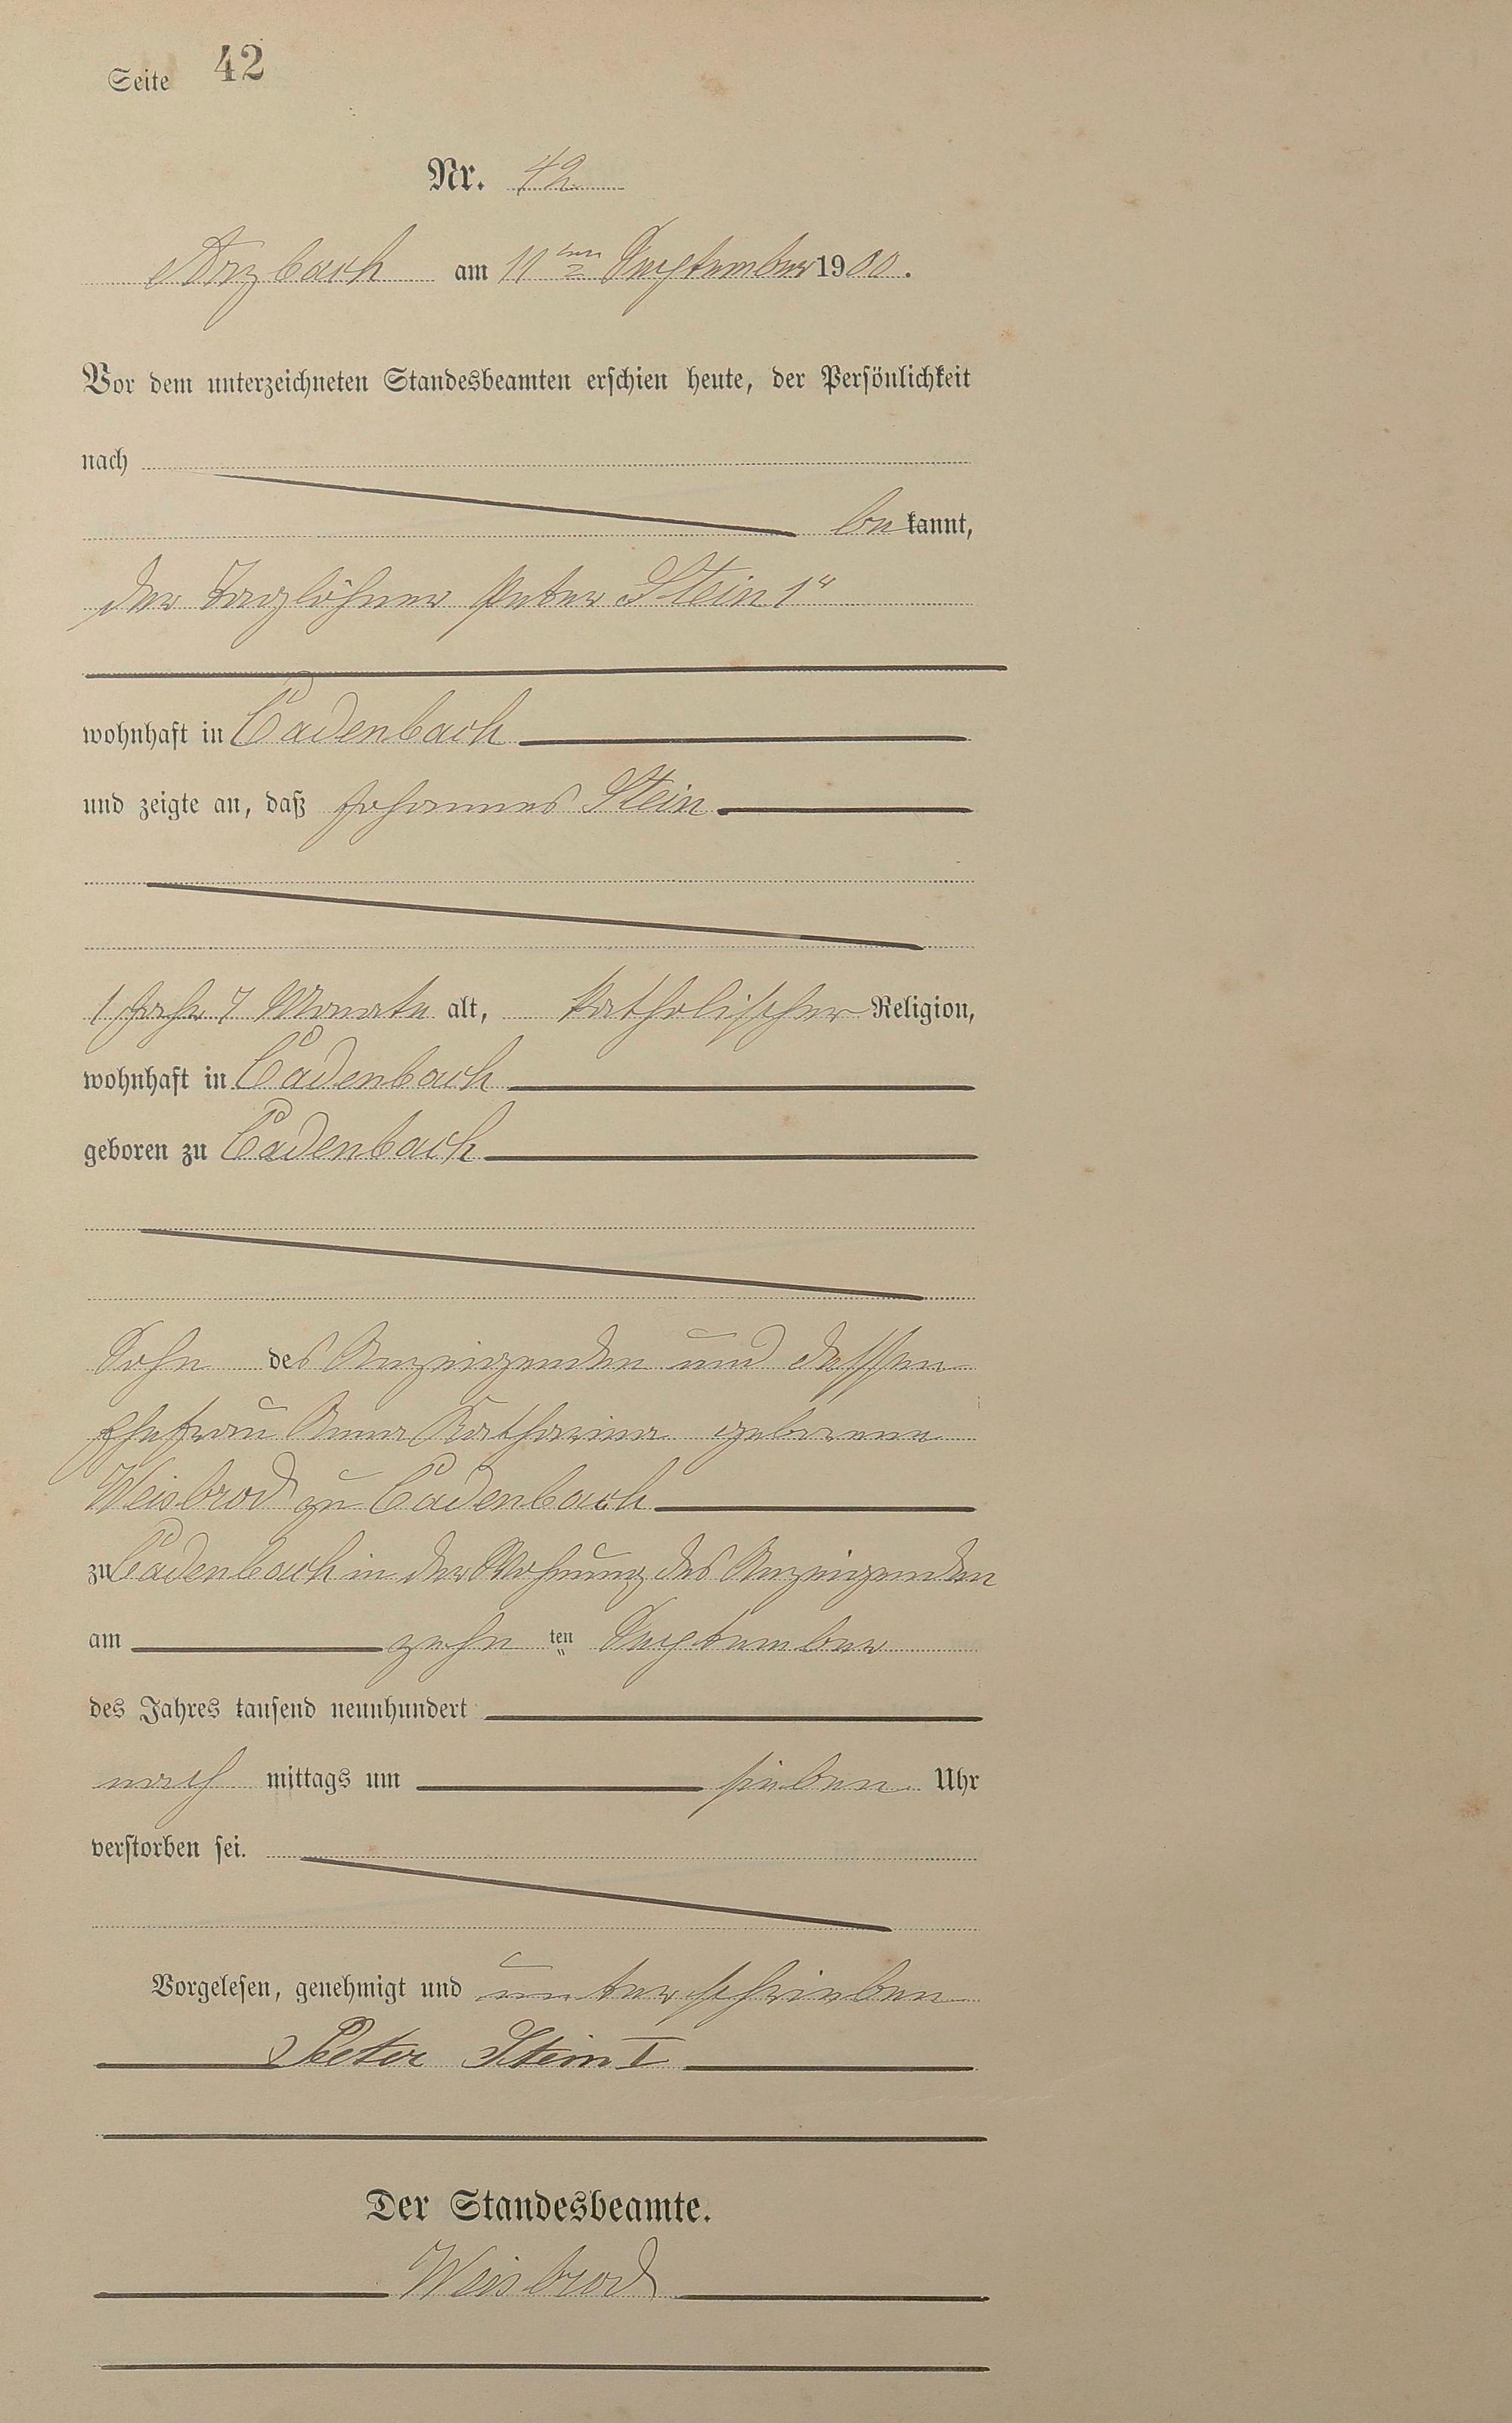 Seite 42
Nr. 42
Arzbach am 11ten September 1900.
Vor dem unterzeichneten Standesbeamten erschien heute, der Persönlichkeit
nach
bekannt,
der Taglöhner Peter Stein 1r
wohnhaft in Cadenbach
und zeigte an, daß Johannes Stein
1 Jahr 7 Monate alt, katholischer Religion,
wohnhaft in Cadenbach
geboren zu Cadenbach
Sohn des Anzeigenden und dessen
Ehefrau Anna Katharina geborene
Weisbrod zu Cadenbach
zu Cadenbach in der Wohnung des Anzeigenden
am zehnten September
des Jahres tausend neunhundert
nachmittags um sieben Uhr
verstorben sei.
Vorgelesen, genehmigt und unterschrieben
Peter Stein I
Der Standesbeamte.
Weisbrod